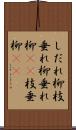 しだれ柳枝
垂れ柳垂れ
柳 枝垂
柳